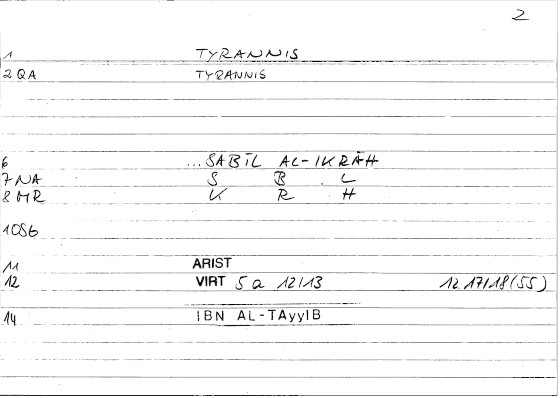 2
1 TYRANNIS
2 QA TYRANNIS
6 ...SABĪL AL-IKRĀH
7 NA S B L
8 MR K R H
10SG
11 ARIST
12 VIRT 5 a 12/13 12 17/18 (55)
14 IBN AL-TAyyIB